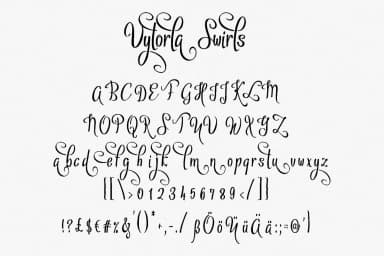 Vytorla Swirls
ABCDEFGHIJKLM
NOPQRSTUVWXYZ
abcdefghijklmnopqrstuvwxyz
{[\>0123456789</]}
!?£$€#%&'()*+,-./ßÖöÜüÄä:;=@'}